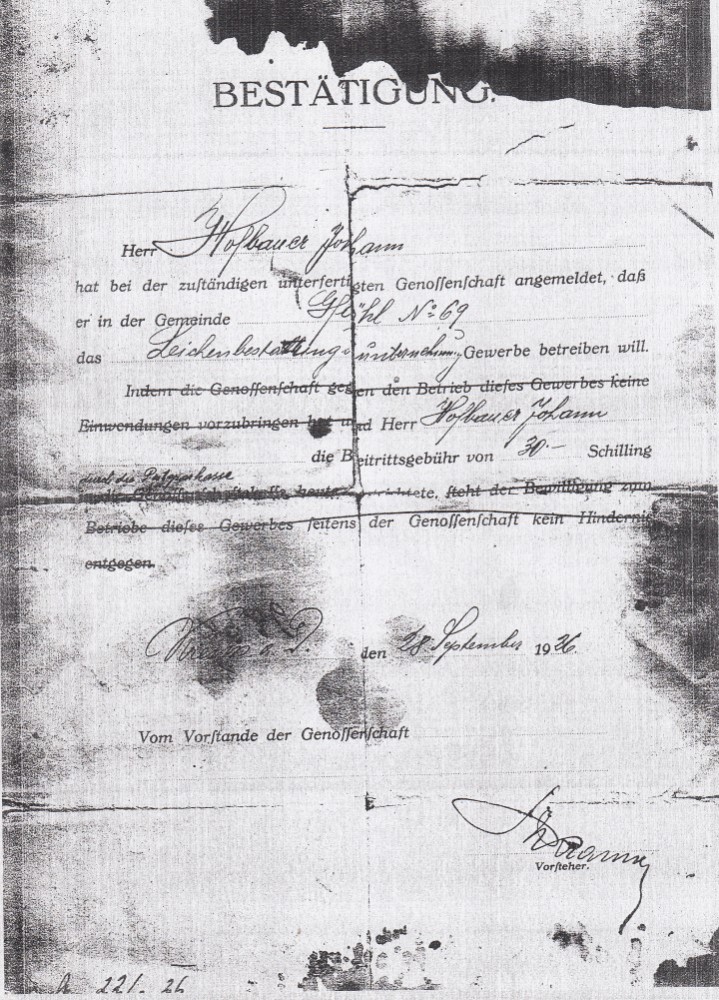 BESTÄTIGUNG.
Herr Hofbauer Johann
hat bei der zuſtändigen unterfertigten Genoſſenſchaft angemeldet, daß
er in der Gemeinde Gföhl No 69
das Leichenbestattungsunternehmung Gewerbe betreiben will.
Indem die Genoſſenſchaft gegen den Betrieb dieſes Gewerbes keine
Einwendungen vorzubringen hat und Herr Hofbauer Johann
die Beitrittsgebühr von 30.- Schilling
durch die Postsparkasse
in die Genoſſenſchaftskaſſe heute entrichtete, ſteht der Bewilligung zum
Betriebe dieſes Gewerbes ſeitens der Genoſſenſchaft kein Hindernis
entgegen.
Krems a. D. den 28 September 1926.
Vom Vorſtande der Genoſſenſchaft
Vorſteher.
221. 26